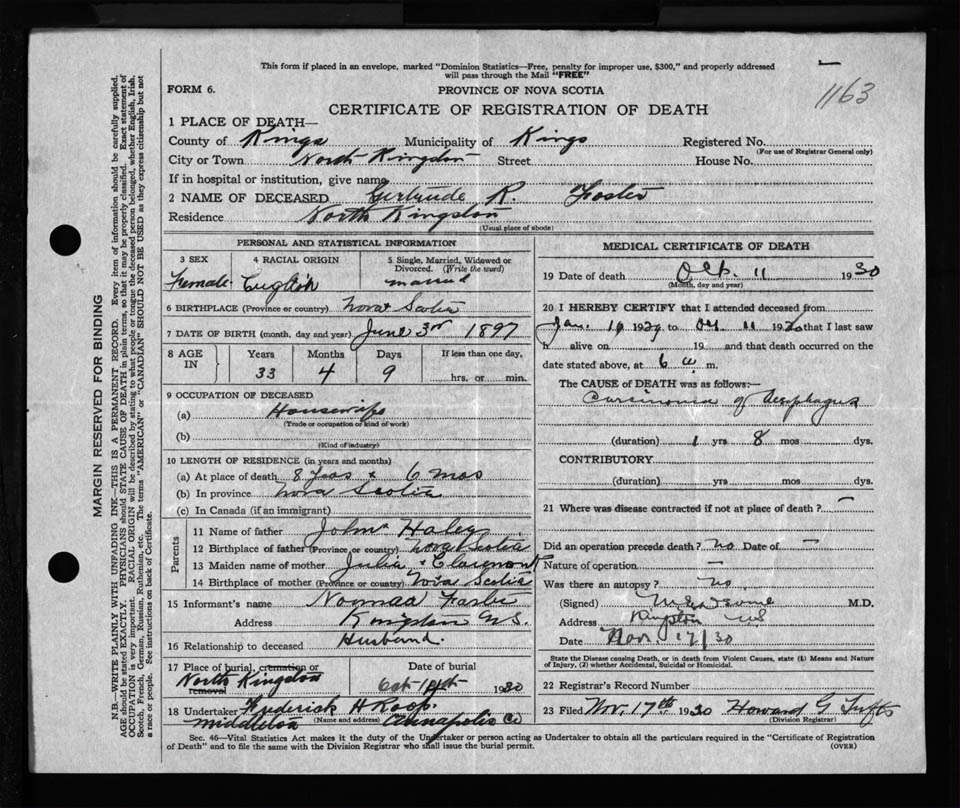 This form if placed in an envelope, marked "Dominion Statistics—Free, penalty for improper use, $300," and properly addressed
will pass through the Mail "FREE"
1163
FORM 6.
PROVINCE OF NOVA SCOTIA
CERTIFICATE OF REGISTRATION OF DEATH
1 PLACE OF DEATH—
County of Kings Municipality of Kings Registered No.
(For use of Registrar General only)
City or Town North Kingston Street House No.
If in hospital or institution, give name
2 NAME OF DECEASED Gertrude R. Foster
Residence North Kingston
(Usual place of abode)
PERSONAL AND STATISTICAL INFORMATION
3 SEX
Female
4 RACIAL ORIGIN
English
5 Single, Married, Widowed or
Divorced. (Write the word)
married
6 BIRTHPLACE (Province or country) Nova Scotia
7 DATE OF BIRTH (month, day and year) June 3rd 1897
8 AGE IN
Years Months Days If less than one day,
33 4 9 hrs. or min.
9 OCCUPATION OF DECEASED
(a) Housewife
(Trade or occupation or kind of work)
(b)
(Kind of industry)
10 LENGTH OF RESIDENCE (in years and months)
(a) At place of death 8 6 mos
(b) In province Nova Scotia
(c) In Canada (if an immigrant)
Parents
11 Name of father John Haley
12 Birthplace of father (Province or country) Nova Scotia
13 Maiden name of mother Julia Clairmont
14 Birthplace of mother (Province or country) Nova Scotia
15 Informant's name Norman Foster
Address Kingston N.S.
16 Relationship to deceased Husband.
17 Place of burial, cremation or
removal
North Kingston
Date of burial
Oct 1930
18 Undertaker Frederick H Roop.
(Name and address)
Middleton Annapolis Co
MEDICAL CERTIFICATE OF DEATH
19 Date of death Oct. 11 1930
(Month, day and year)
20 I HEREBY CERTIFY that I attended deceased from
Jan. 1929 to Oct 11 1930 that I last saw
h alive on 19 and that death occurred on the
date stated above, at 6 a. m.
The CAUSE OF DEATH was as follows:—
Carcinoma of Aesophagus
(duration) 1 yrs 8 mos dys.
CONTRIBUTORY
(duration) yrs mos dys.
21 Where was disease contracted if not at place of death? —
Did an operation precede death? no Date of —
Nature of operation —
Was there an autopsy? no
(Signed) M.D.
Address Kingston NS
Date Nov. 17/30
State the Disease causing Death, or in death from Violent Causes, state (1) Means and Nature
of Injury, (2) whether Accidental, Suicidal or Homicidal.
22 Registrar's Record Number
23 Filed Nov. 17th 1930 Howard G Tufts
(Division Registrar)
Sec. 46—Vital Statistics Act makes it the duty of the Undertaker or person acting as Undertaker to obtain all the particulars required in the "Certificate of Registration
of Death" and to file the same with the Division Registrar who shall issue the burial permit.
(OVER)
MARGIN RESERVED FOR BINDING
N.B.—WRITE PLAINLY WITH UNFADING INK—THIS IS A PERMANENT RECORD. Every item of information should be carefully supplied.
AGE should be stated EXACTLY. PHYSICIANS should STATE CAUSE OF DEATH in plain terms, so that it may be properly classified. Exact statement of
OCCUPATION is very important. RACIAL ORIGIN will be described by stating to what people or tongue the deceased person belonged, whether English, Irish,
Scotch, French, German, Russian, Ruthenian, etc. The terms "AMERICAN" or "CANADIAN" SHOULD NOT BE USED as they express citizenship but not
a race or people. See instructions on back of Certificate.